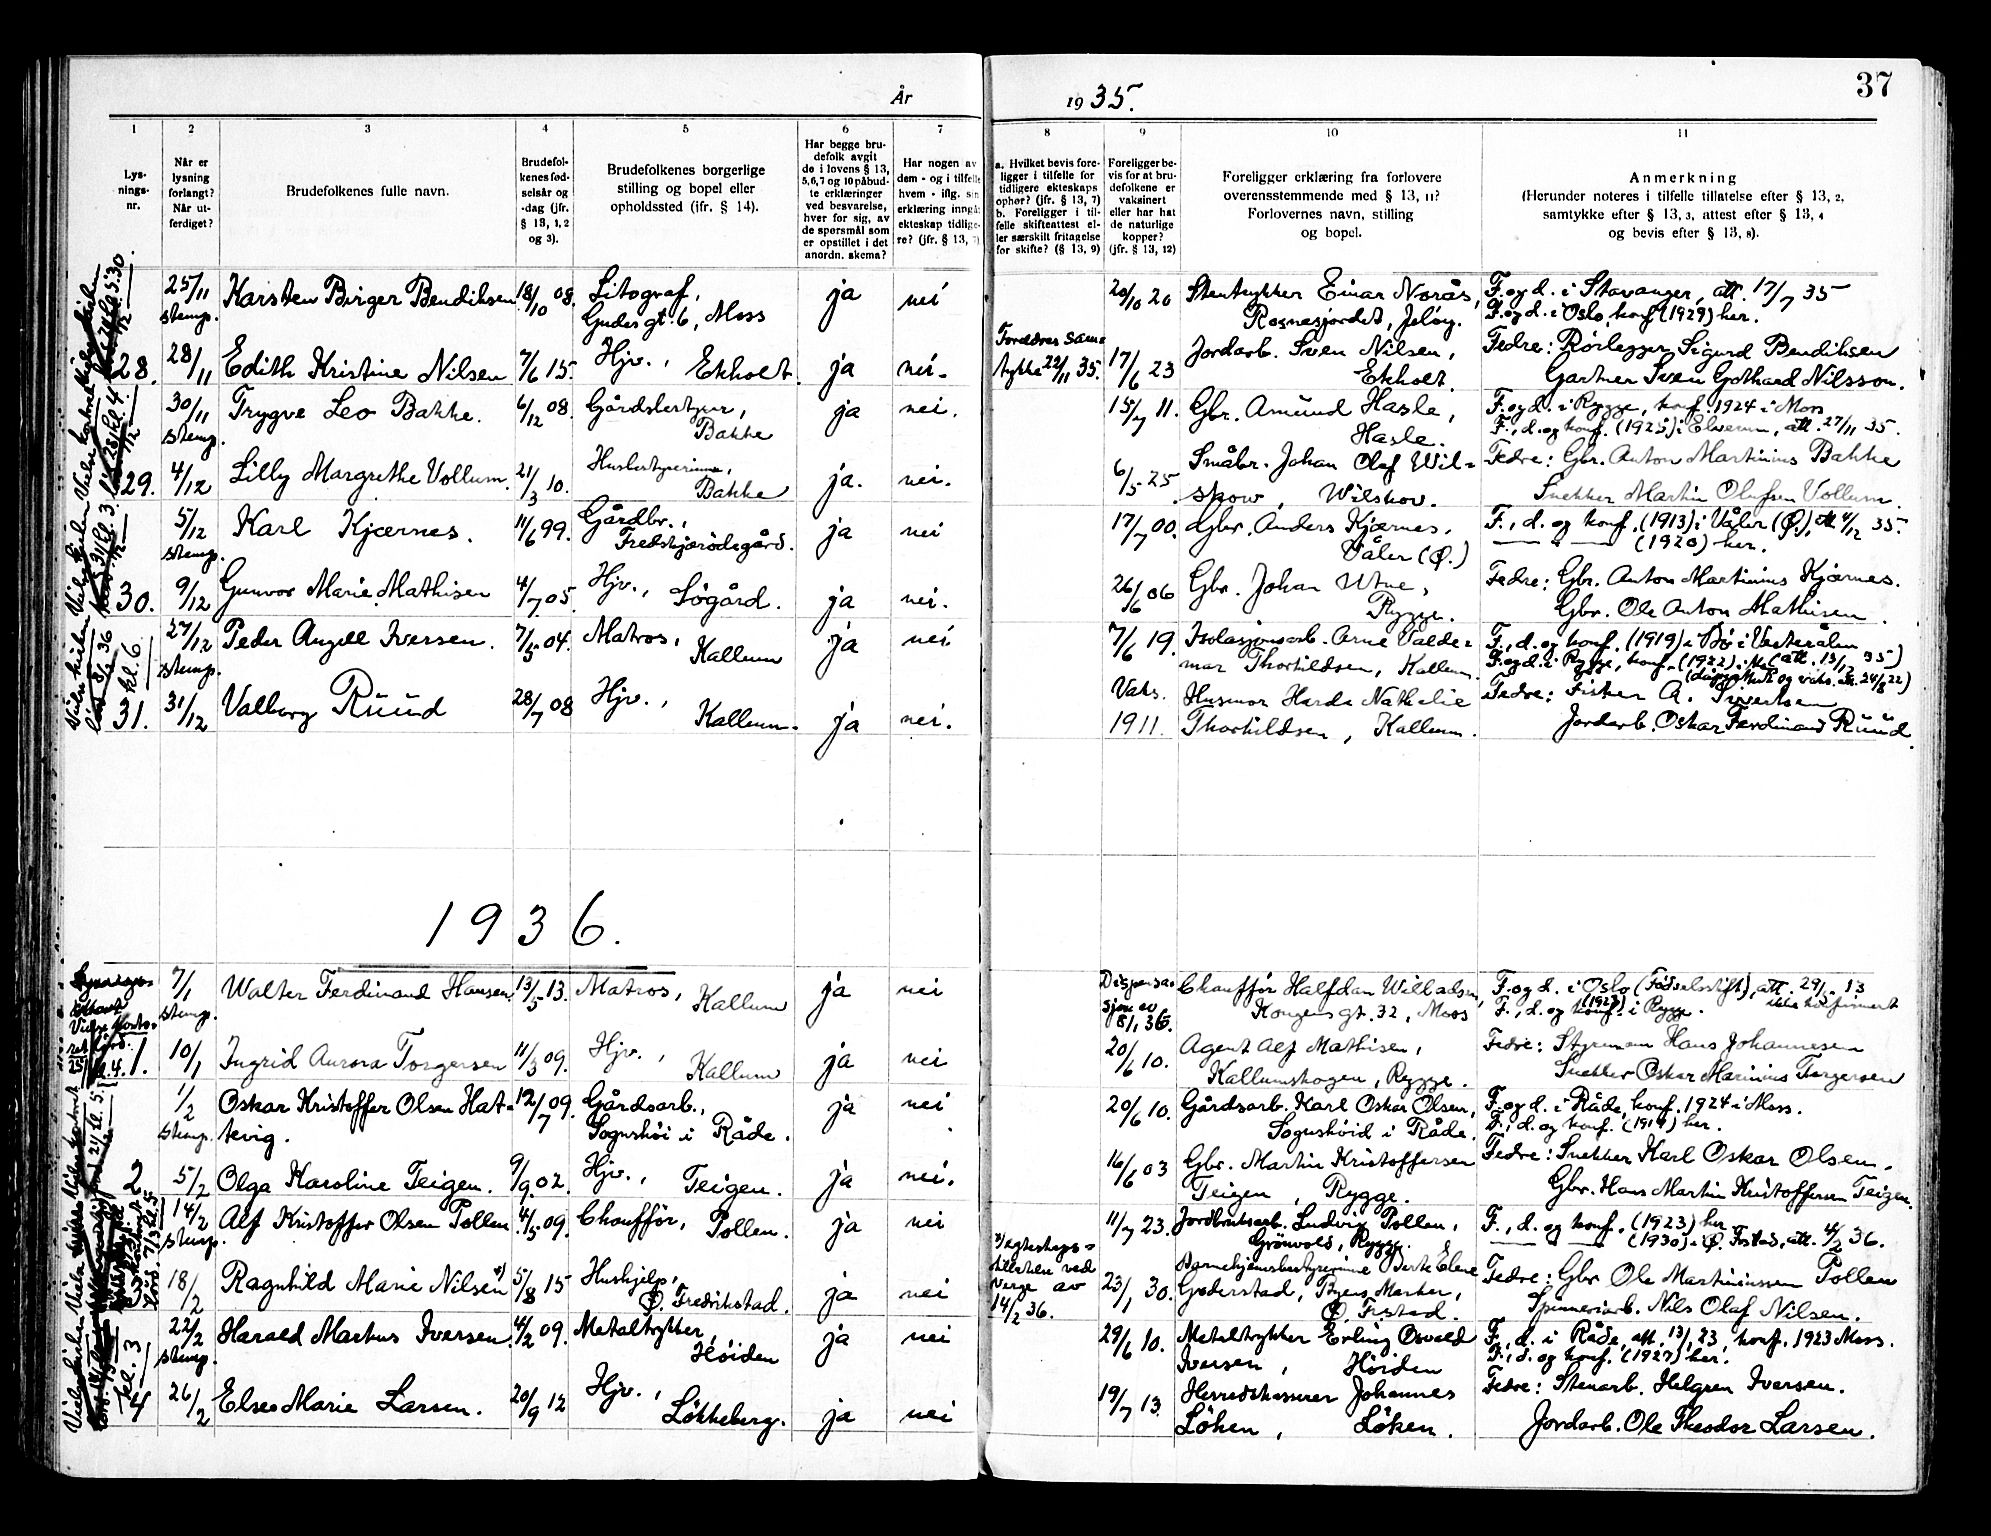 År 1935.
37
1 2 3 4 5 6 7 8 9 10 11
Lys-
nings-
nr.
Når er
lysning
forlangt?
Når ut-
ferdiget?
Brudefolkenes fulle navn.
Brudefol-
kenes fød-
selsår og
-dag (jfr.
§ 13, 1, 2
og 3).
Brudefolkenes borgerlige
stilling og bopel eller
opholdssted (ifr. § 14).
Har begge bru-
defolk avgit
de i lovens § 13,
5, 6, 7 og 10 påbud-
te erklæringer
ved besvarelse,
hver for sig, av
de spørsmål som
er opstillet i det
anordn. skema?
Har nogen av
dem - og i tilfelle
hvem - iflg. sin
erklæring inngåt
ekteskap tidlige-
re? (jfr. § 13, 7)
a. Hvilket bevis fore-
ligger i tilfelle for
tidligere ekteskaps
ophør? (jfr. § 13, 7)
b. Foreligger i til-
felle skifteattest el-
ler særskilt fritagelse
for skifte? (§ 13, 9)
Foreligger be-
vis for at bru-
defolkene er
vaksinert
eller har hat
de naturlige
kopper?
(jfr. § 13, 12)
Foreligger erklæring fra forlovere
overensstemmende med § 13, 11?
Forlovernes navn, stilling
og bopel.
Anmerkning
(Herunder noteres i tilfelle tillatelse efter § 13, 2,
samtykke efter § 13, 3, attest efter § 13, 4
og bevis efter § 13, 8).
25/11 stemp. Karsten Birger Bendiksen 18/10 08. Litograf, Gudes gt. 6, Moss ja nei 20/10 20 Stentrykker Einar Norås, Rosnesjordet, Jeløy. F. og d. i Stavanger, att. 17/7 35
F. og d. i Oslo, konf. (1929) her.
28. 28/11 Edith Kristine Nilsen 7/6 15. Hjv., Ekholt. ja nei. Foreldres sam-
tykke 22/11 35. 17/6 23 Jordarb. Sven Nilsen, Ekholt. Fedre: Rørlegger Sigurd Bendiksen
Gartner Sven Gothard Nilsson.
30/11 stemp. Trygve Leo Bakke. 6/12 08. Gårdsbestyrer, Bakke ja nei. 15/7 11. Gbr. Amund Hasle, Hasle. F. og d. i Rygge, konf. 1924 i Moss
F., d. og konf. (1925) i Elverum, att. 27/11 35.
29. 4/12 Lilly Margrethe Vollum. 21/3 10. Husbestyrerinne, Bakke ja. nei. 6/5 25 Småbr. Johan Olaf Wil-
skow, Wilskov. Fedre: Gbr. Anton Martinius Bakke
Snekker Martin Olufsen Vollum.
5/12 stemp. Karl Kjærnes. 11/6 99. Gårdbr., Fredskjærødegård. ja nei 17/7 00. Gbr. Anders Kjærnes, Våler (Ø.) F., d. og konf. (1913) i Våler (Ø.), att. 4/12 35.
— — (1920) her.
30. 9/12 Gunvor Marie Mathisen 4/7 05. Hjv., Søgård. ja nei. 26/6 06 Gbr. Johan Utne, Rygge. Fedre: Gbr. Anton Martinius Kjærnes.
Gbr. Ole Anton Mathisen.
27/12 stemp. Peder Angell Iversen. 7/5 04. Matros, Kallum ja nei 7/6 19. Isolasjonsarb. Arne Valde-
mar Thorkildsen, Kallum. F., d. og konf. (1919) i Bø i Vesterålen
F. og d. i Rygge, konf. (1922) i
31. 31/12 Valborg Ruud 28/7 08 Hjv., Kallum. ja nei. Vaks. 1911. Husmor Harda Nathalie
Thorkildsen, Kallum. Fedre: Fisker A. Sivertsen
Jordarb. Oskar Ferdinand Ruud.
1936.
7/1 stemp. Walter Ferdinand Hansen 13/5 13. Matros, Kallum ja nei Dispensa-
sjon av
8/1 36. Chaufför Halfdan Willadsen,
Kongens gt. 32, Moss F. og d. i Oslo (Fødselsstift), att. 29/ 13 ikke konfirmert
F., d. og konf. (1923) i Rygge.
1. 10/1 Ingrid Aurora Torgersen 11/3 09. Hjv., Kallum ja nei 20/6 10. Agent Alf Mathisen,
Kallumskogen, Rygge. Fedre: Styrmann Hans Johannesen
Snekker Oskar Marinius Torgersen
1/2 stemp. Oskar Kristoffer Olsen Hat-
tevig. 12/7 09. Gårdsarb., Sognshöi i Råde. ja nei 20/6 10. Gårdsarb. Karl Oskar Olsen,
Sognshöid i Råde. F. og d. i Råde, konf. 1924 i Moss.
F., d. og konf. (1917) her.
2 5/2 Olga Karoline Teigen. 9/9 02. Hjv., Teigen. ja nei. 16/6 03 Gbr. Martin Kristoffersen
Teigen, Rygge. Fedre: Snekker Karl Oskar Olsen.
Gbr. Hans Martin Kristoffersen Teigen.
14/2 stemp. Alf Kristoffer Olsen Pollen 4/5 09. Chaufför, Pollen. ja nei 11/7 23. Jordbruksarb. Ludvig Pollen,
Grönvold, Rygge. F., d. og konf. (1923) her
— — (1930) i Ø. Frstad, att. 4/2 36.
3 18/2 Ragnhild Marie Nilsen 5/8 15 Hushjelp, Ø. Fredrikstad. ja nei tillatelse ved
verge av
14/2 36. 23/1 30. Barnehjemsbestyrerinne Berte Elene
Gæderstad, Byens Marker,
Ø. Frstad. Fedre: Gbr Ole Martiniussen Pollen
Spinneriarb. Nils Olaf Nilsen.
22/2 stemp. Harald Markus Iversen 4/2 09. Metaltrykker, Höiden ja nei 29/6 10. Metaltrykker Erling Osvald
Iversen, Höiden F., d. i Råde, att. 13/1 23, konf. 1923 Moss.
F., d. og konf. (1927) her.
4 26/2 Else Marie Larsen. 20/9 12 Hjv., Løkkeberg. ja nei 19/7 13. Herredskasserer Johannes
Löken, Löken. Fedre: Stenarb. Helgren Iversen.
Jordarb. Ole Theodor Larsen.